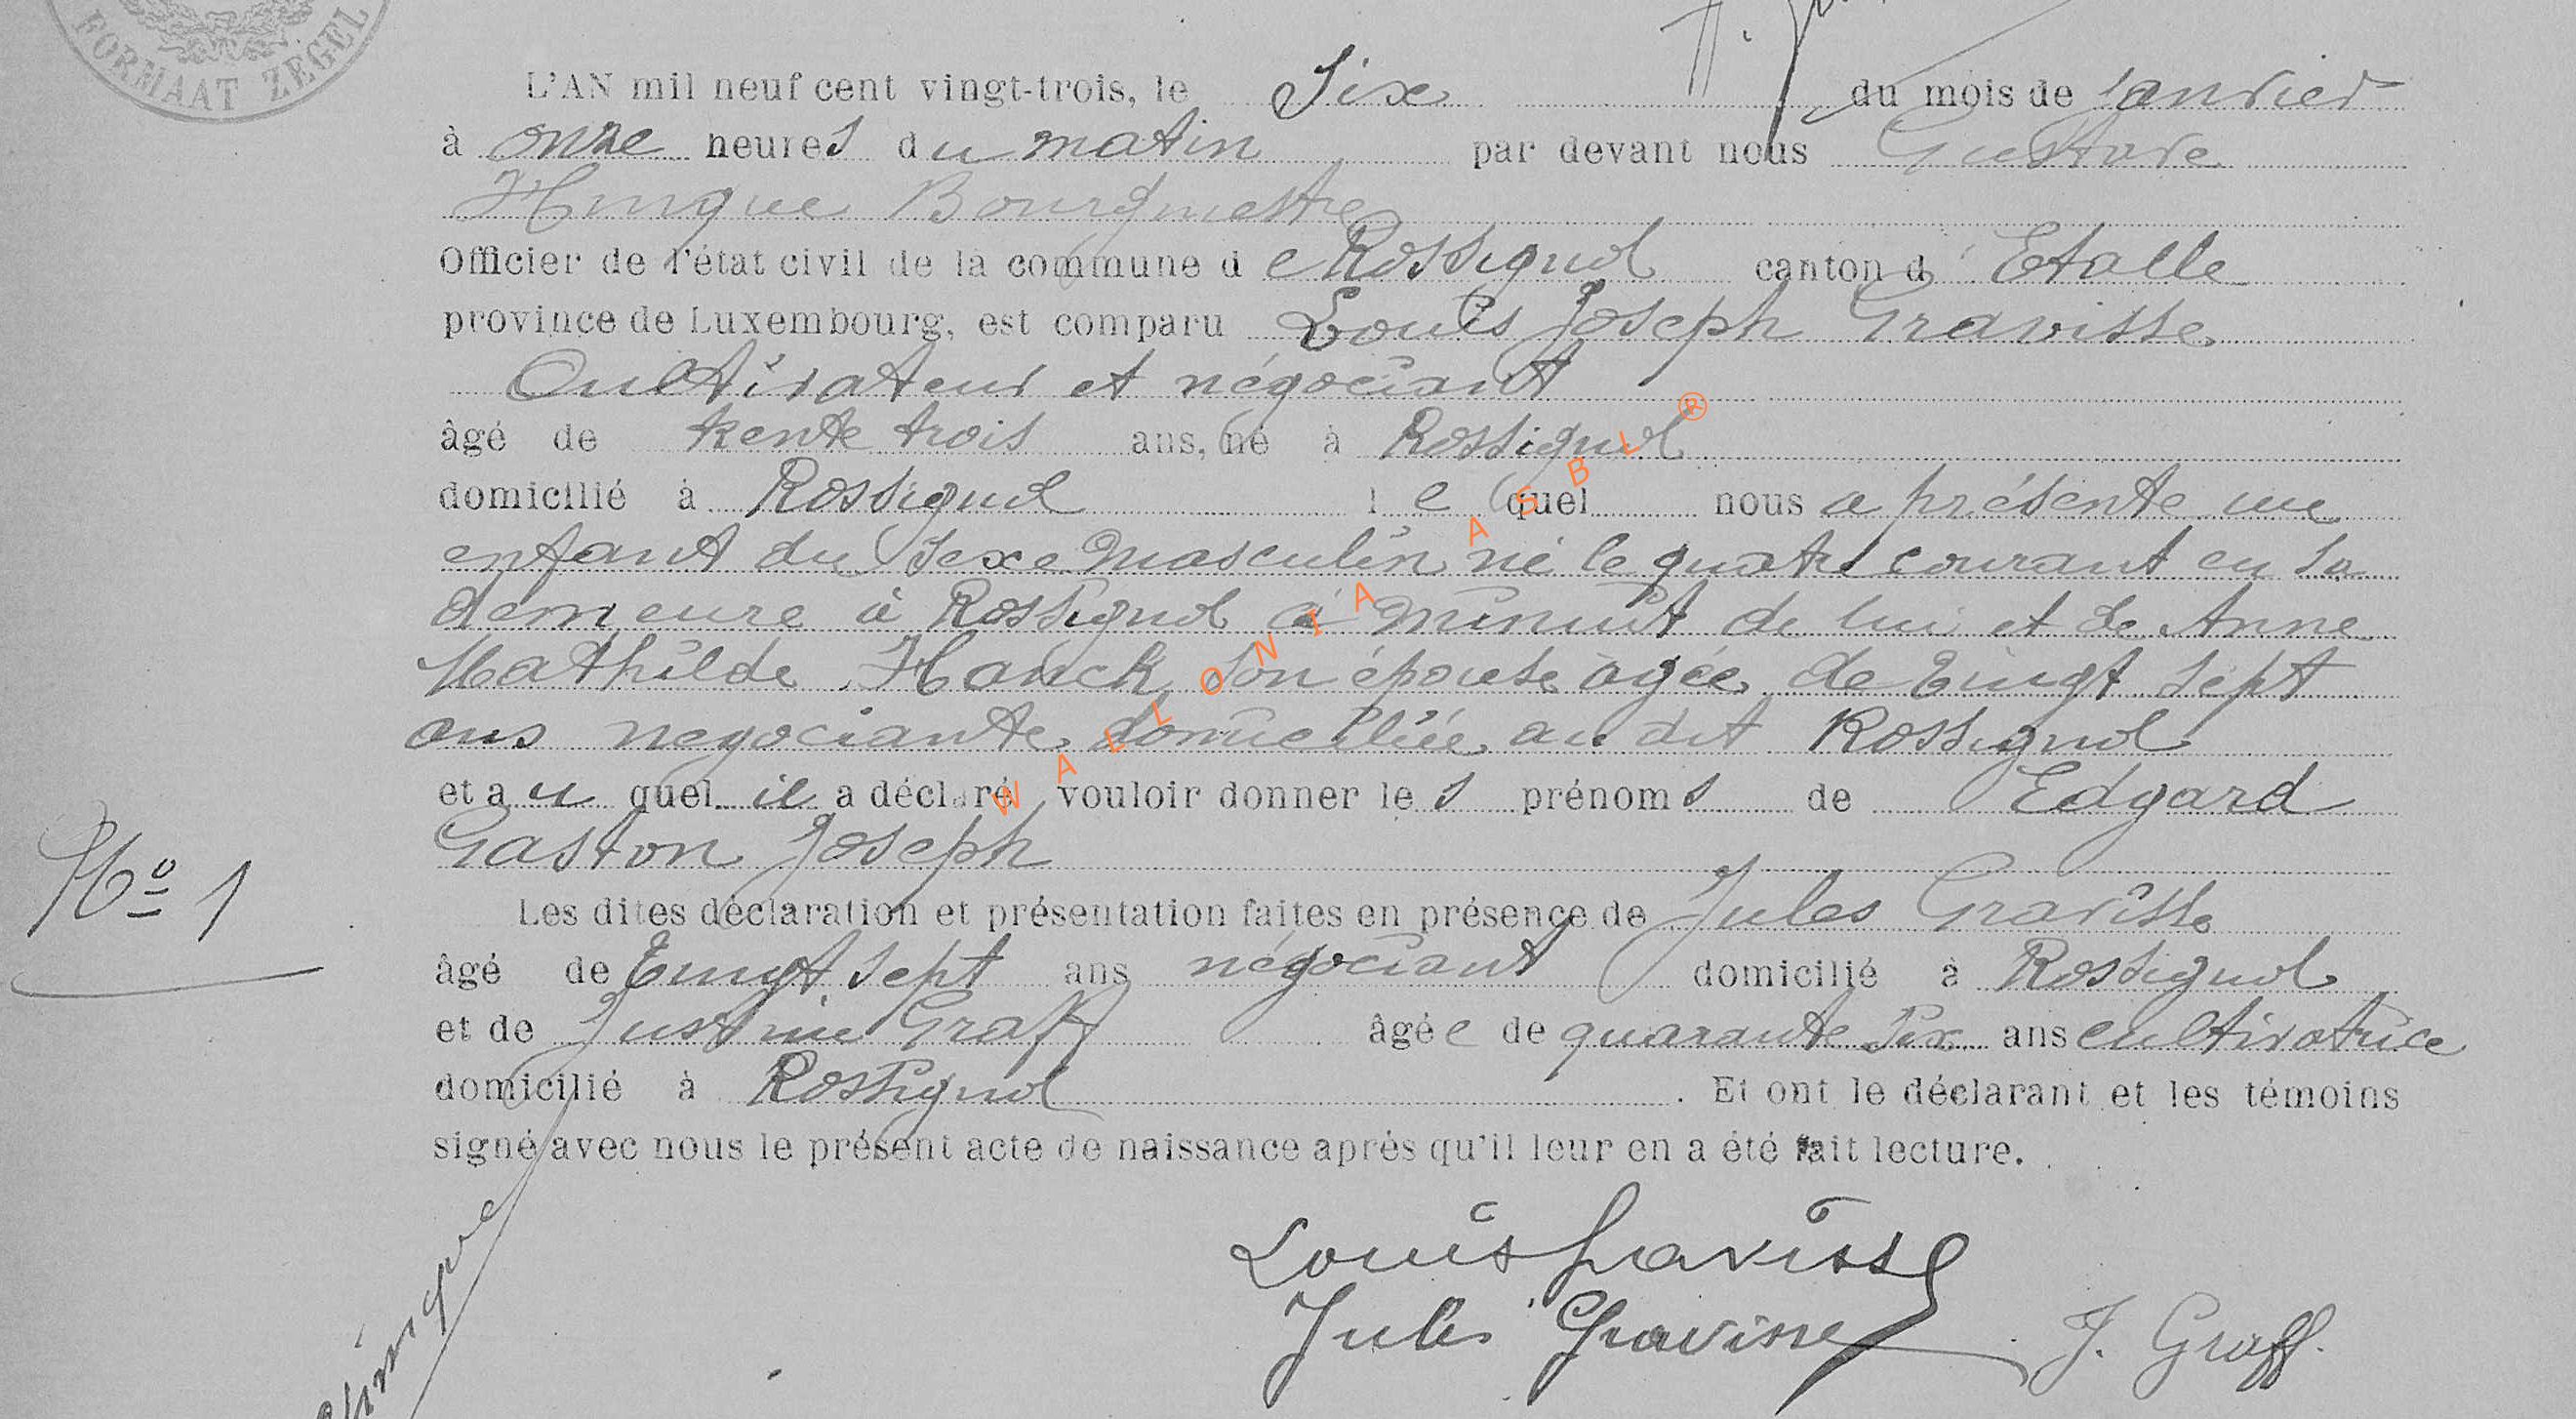 FORMAAT ZEGEL
L'AN mil neuf cent vingt-trois, le Six du mois de Janvier
à onze heures du matin par devant nous Gustave
Hinque Bourgmestre
Officier de l'état civil de la commune de Rossignol canton d'Etalle
province de Luxembourg, est comparu Louis Joseph Gravisse
Cultivateur et négociant
âgé de trente trois ans, né à Rossignol
domicilié à Rossignol lequel nous a présenté un
enfant du sexe masculin né le quatre courant en sa
demeure à Rossignol à minuit de lui et de Anne
Mathilde Hanck son épouse âgée de vingt sept
ans negociante domiciliée au dit Rossignol
et au quel il a déclaré vouloir donner les prénoms de Edgard
Gaston Joseph
Nº 1
Les dites déclaration et présentation faites en présence de Jules Gravisse
âgé de vingt sept ans négociant domicilié à Rossignol
et de Justine Graff âgée de quarante six ans cultivatrice
domicilié à Rossignol. Et ont le déclarant et les témoins
signé avec nous le présent acte de naissance après qu'il leur en a été fait lecture.
Louis Gravisse
Jules Gravisse J. Graff.
WALLONIA ASBL ®